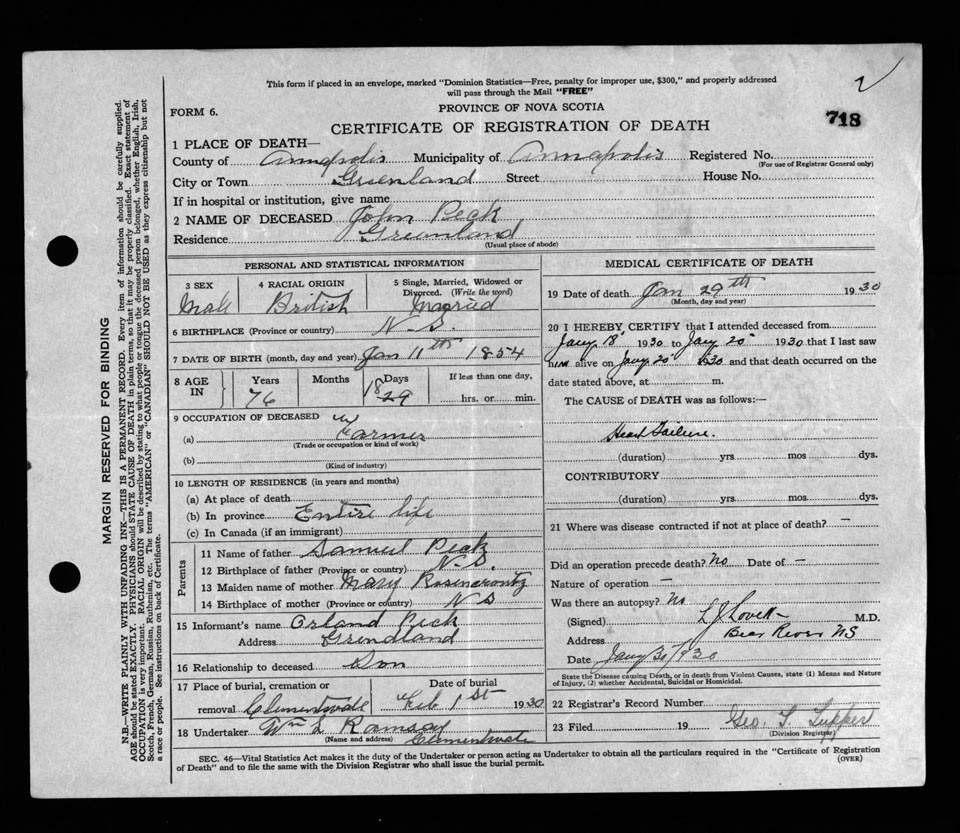 This form if placed in an envelope, marked "Dominion Statistics—Free, penalty for improper use, $300," and properly addressed
will pass through the Mail "FREE"
2
FORM 6.
PROVINCE OF NOVA SCOTIA
718
CERTIFICATE OF REGISTRATION OF DEATH
1 PLACE OF DEATH—
County of Annapolis Municipality of Annapolis Registered No.
(For use of Registrar General only)
City or Town Greenland Street House No.
If in hospital or institution, give name
2 NAME OF DECEASED John Peck
Residence Greenland
(Usual place of abode)
PERSONAL AND STATISTICAL INFORMATION
3 SEX 4 RACIAL ORIGIN 5 Single, Married, Widowed or
Divorced. (Write the word)
Male British Married
6 BIRTHPLACE (Province or country) N.S.
7 DATE OF BIRTH (month, day and year) Jan 11th 1854
8 AGE IN Years Months Days If less than one day,
76 18 29 hrs. or min.
9 OCCUPATION OF DECEASED
(a) Farmer
(Trade or occupation or kind of work)
(b)
(Kind of industry)
10 LENGTH OF RESIDENCE (in years and months)
(a) At place of death
(b) In province Entire life
(c) In Canada (if an immigrant)
Parents
11 Name of father Samuel Peck
12 Birthplace of father (Province or country) N.S.
13 Maiden name of mother Mary Rosencrantz
14 Birthplace of mother (Province or country) NS
15 Informant's name Orland Peck
Address Greenland
16 Relationship to deceased Son
17 Place of burial, cremation or Date of burial
removal Clementsvale Feb 1st 1930
18 Undertaker Wm L Ramsay
(Name and address) Clementsvale
MEDICAL CERTIFICATE OF DEATH
19 Date of death Jan 29th 1930
(Month, day and year)
20 I HEREBY CERTIFY that I attended deceased from
Jany 18 1930 to Jany 20 1930 that I last saw
him alive on Jany 20 1930 and that death occurred on the
date stated above, at m.
The CAUSE of DEATH was as follows:—
Heart Failure.
(duration) yrs. mos. dys.
CONTRIBUTORY
(duration) yrs. mos. dys.
21 Where was disease contracted if not at place of death? —
Did an operation precede death? No Date of —
Nature of operation —
Was there an autopsy? No
(Signed) L J Lovett M.D.
Address Bear River NS
Date Jany 30/1930
State the Disease causing Death, or in death from Violent Causes, state (1) Means and Nature
of Injury, (2) whether Accidental, Suicidal or Homicidal.
22 Registrar's Record Number
23 Filed 19 Geo. L. Tupper
(Division Registrar)
SEC. 46—Vital Statistics Act makes it the duty of the Undertaker or person acting as Undertaker to obtain all the particulars required in the "Certificate of Registration
of Death" and to file the same with the Division Registrar who shall issue the burial permit.
(OVER)
MARGIN RESERVED FOR BINDING
N.B.—WRITE PLAINLY WITH UNFADING INK—THIS IS A PERMANENT RECORD. Every item of information should be carefully supplied.
AGE should be stated EXACTLY. PHYSICIANS should STATE CAUSE OF DEATH in plain terms, so that it may be properly classified. Exact statement of
OCCUPATION is very important. RACIAL ORIGIN will be described by stating to what people or tongue the deceased person belonged, whether English, Irish,
Scotch, French, German, Russian, Ruthenian, etc. The terms "AMERICAN" or "CANADIAN" SHOULD NOT BE USED as they express citizenship but not
a race or people. See instructions on back of Certificate.